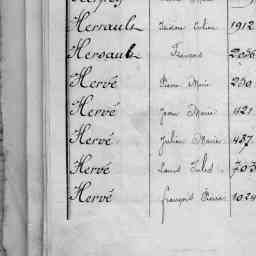 Herrault 1912
Hervault François 2056
Hervé Pierre Marie 230
Hervé Jean Marie 421
Hervé Julien Marie 437
Hervé Louis Jules 703
Hervé François Pierre 1024